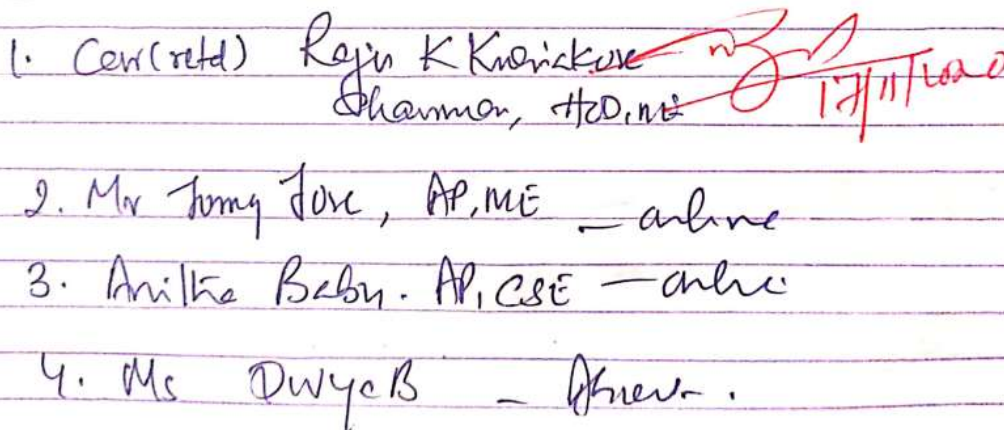 1. Cdr(retd) Raju K Kuriakose
Chairman, HOD, ME
17/11/2020
2. Mr Tomy Jose, AP, ME – online
3. Anitha Baby. AP, CSE – online
4. Ms Divya B – Absent.